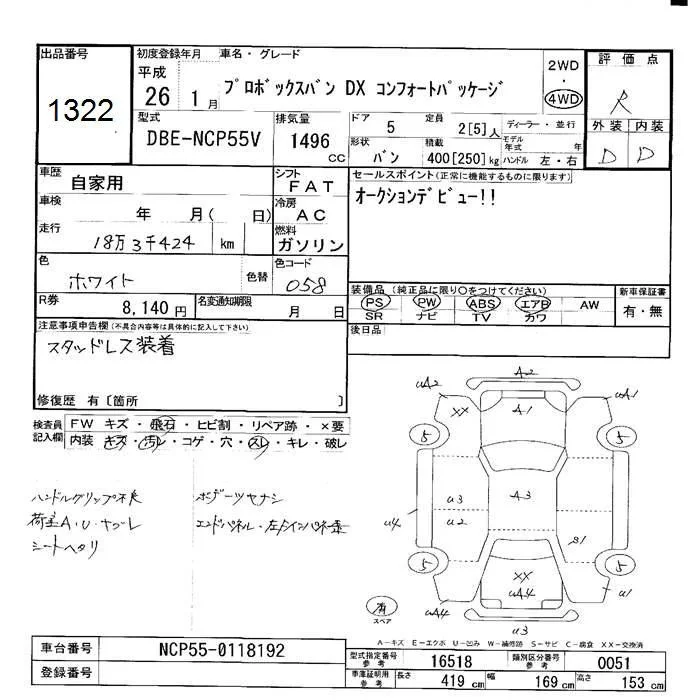 出品番号
1322
初度登録年月
平成
26 1月
車名・グレード
プロボックスバン DX コンフォートパッケージ
2WD
・
4WD
評価点
R
外装 内装
D D
型式
DBE-NCP55V
排気量
1496
cc
ドア
5
定員
2[5]人
ディーラー・並行
形状
バン
積載
400[250]kg
モデル年式 年
ハンドル 左・右
車歴
自家用
シフト
FAT
車検
年 月(日)
冷房
AC
走行
18万3千424 km
燃料
ガソリン
色
ホワイト
色替
色コード
058
R券
8,140円
名変通知期限
月 日
セールスポイント(正常に機能するものに限ります)
オークションデビュー!!
装備品(純正品に限り○をつけてください)
PS PW ABS エアB AW
SR ナビ TV カワ
新車保証書
有・無
後日品
注意事項申告欄(不具合内容等は具体的に記入して下さい)
スタッドレス装着
修復歴 有〔箇所 〕
検査員
記入欄
FW キズ・飛石・ヒビ割・リペア跡・×要
内装・キズ・汚レ・コゲ・穴・スレ・キレ・破レ
ハンドルグリップ不良
荷室A・U・ヤブレ
シートヘタリ
ボデーツヤナシ
A2
uA2
XX
A1
uA1
5
5
u3
u2
A3
u4
S1
5
5
XX
uA4
uA4
u1
u3
有
スペア
A-キズ E-エクボ U-凹み W-補修跡 S-サビ C-腐食 XX-交換済
車台番号
NCP55-0118192
登録番号
型式指定番号
参考
16518
類別区分番号
参考
0051
車庫証明用
参考
長さ
419 cm
幅
169 cm
高さ
153 cm